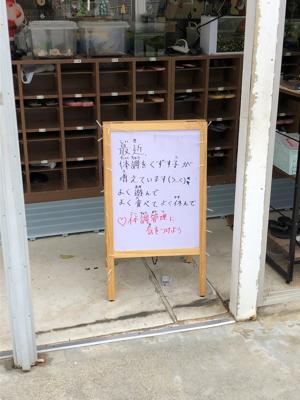 最近
体調をくずす子が
増えています(>_<)
よく遊んで
よく食べて、よく休んで
♡体調管理に
気をつけよう